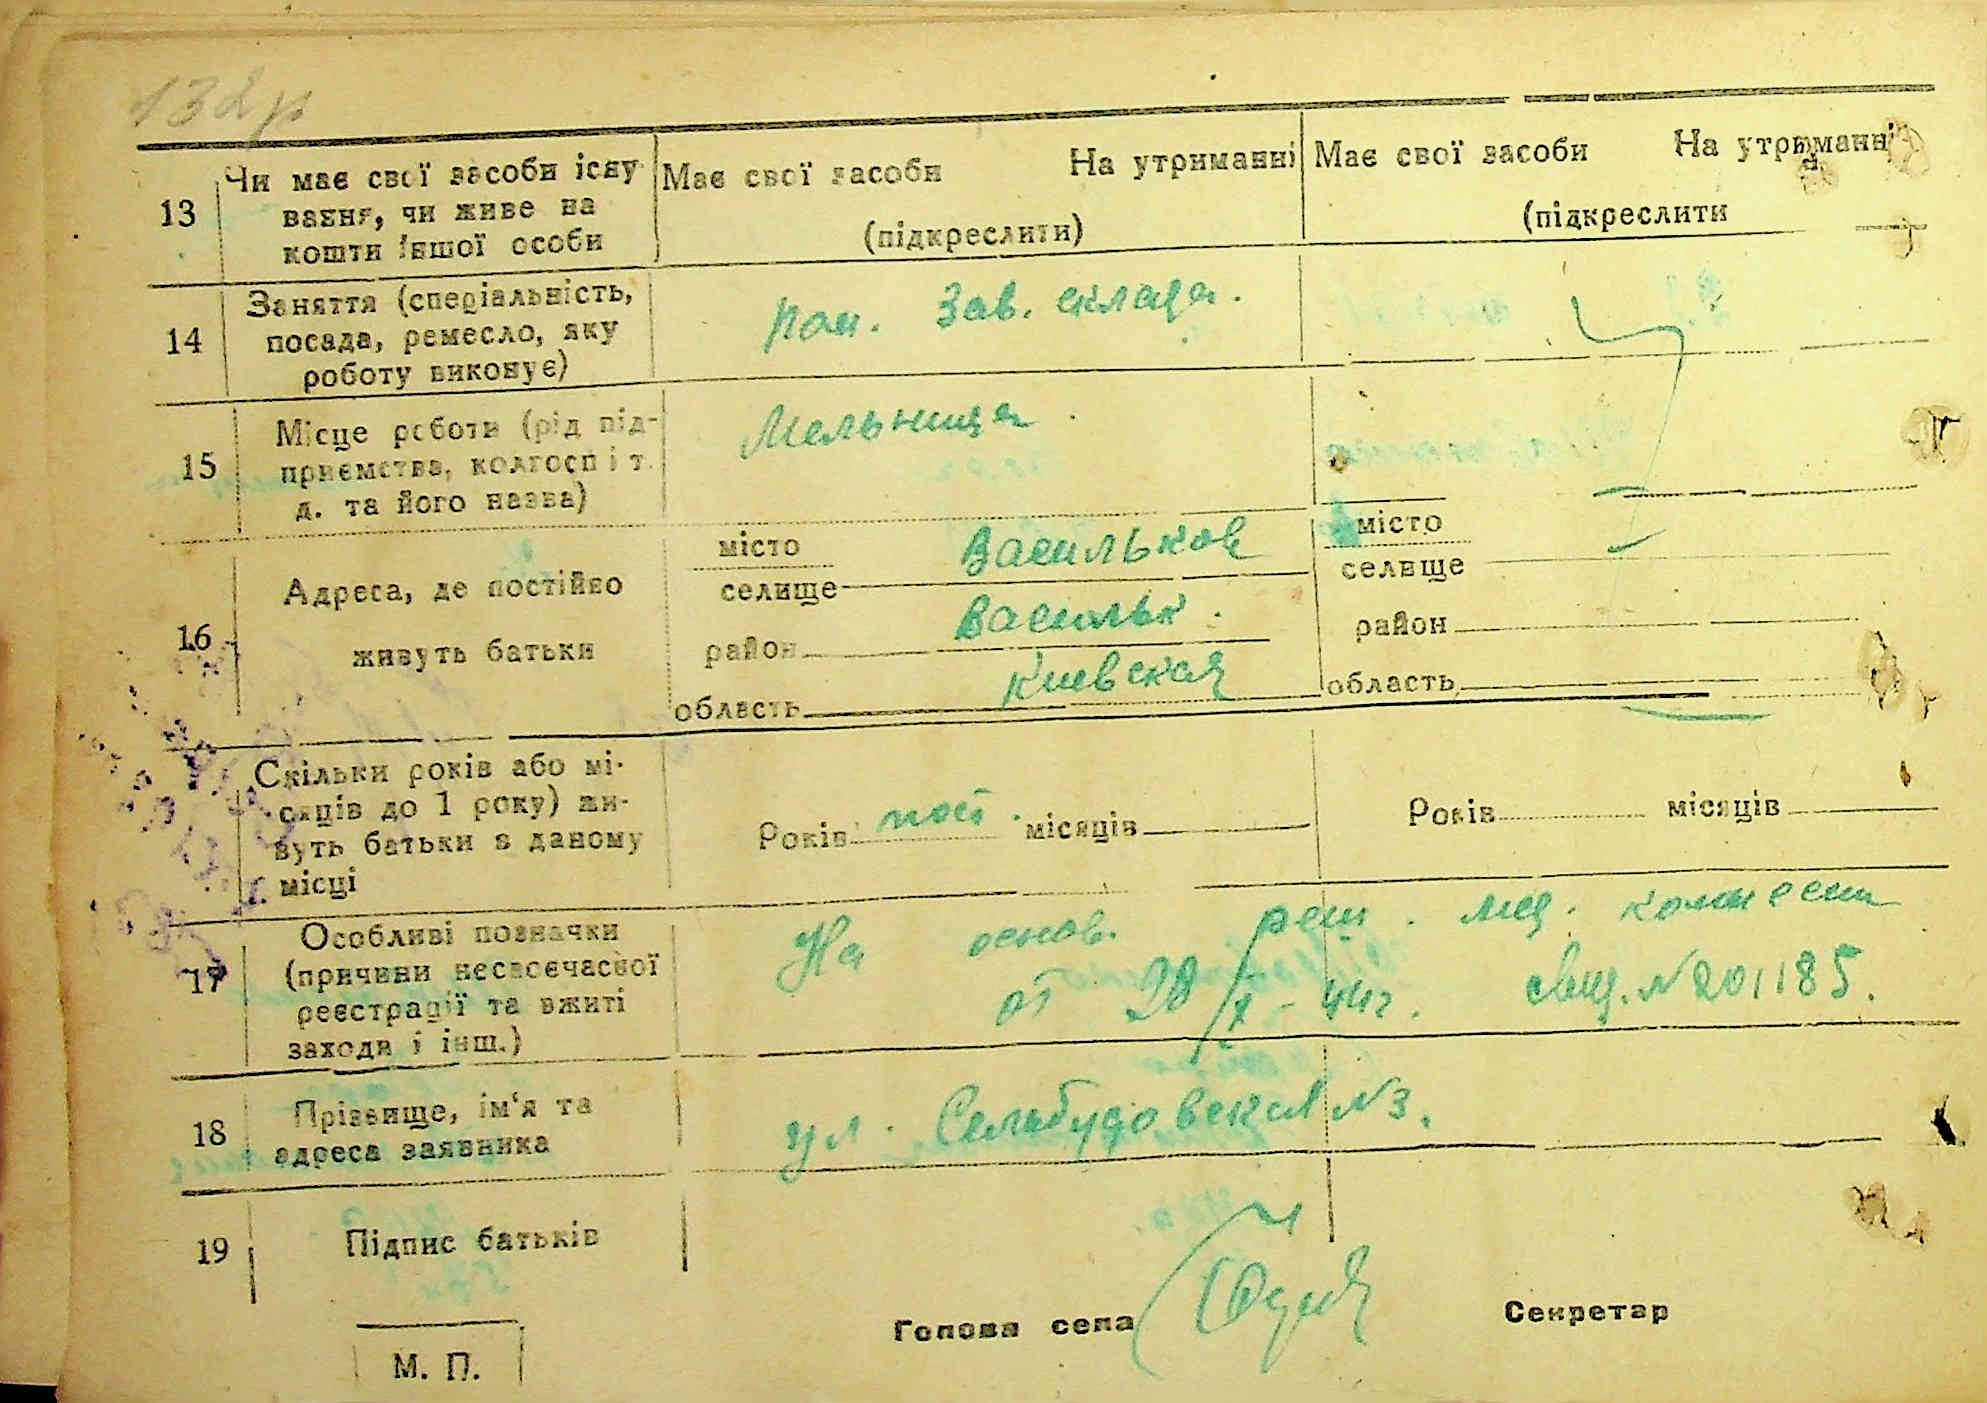 132
13
Чи має свої засоби існу-
вання, чи живе на
кошти іншої особи
Має свої засоби На утриманні
(підкреслити)
Має свої засоби На утриманні
(підкреслити
14
Заняття (спеціальність,
посада, ремесло, яку
роботу виконує)
пом. Зав. склада.
15
Місце роботи (рід під-
приємства, колгосп і т.
д. та його назва)
Мельница.
16
Адреса, де постійно
живуть батьки
місто
селище Васильков
район Васильк.
область Киевская
місто
селище
район
область
Скільки років або мі-
сяців до 1 року) жи-
вуть батьки в даному
місці
Років пост. місяців
Років місяців
17
Особливі позначки
(причини несвоєчасної
реєстрації та вжиті
заходи і інш.)
На основ. реш. мед. комисси
от 28/X-44г. свид. №201185.
18
Прізвище, ім'я та
адреса заявника
ул. №3.
19
Підпис батьків
М. П.
Голова села
Секретар